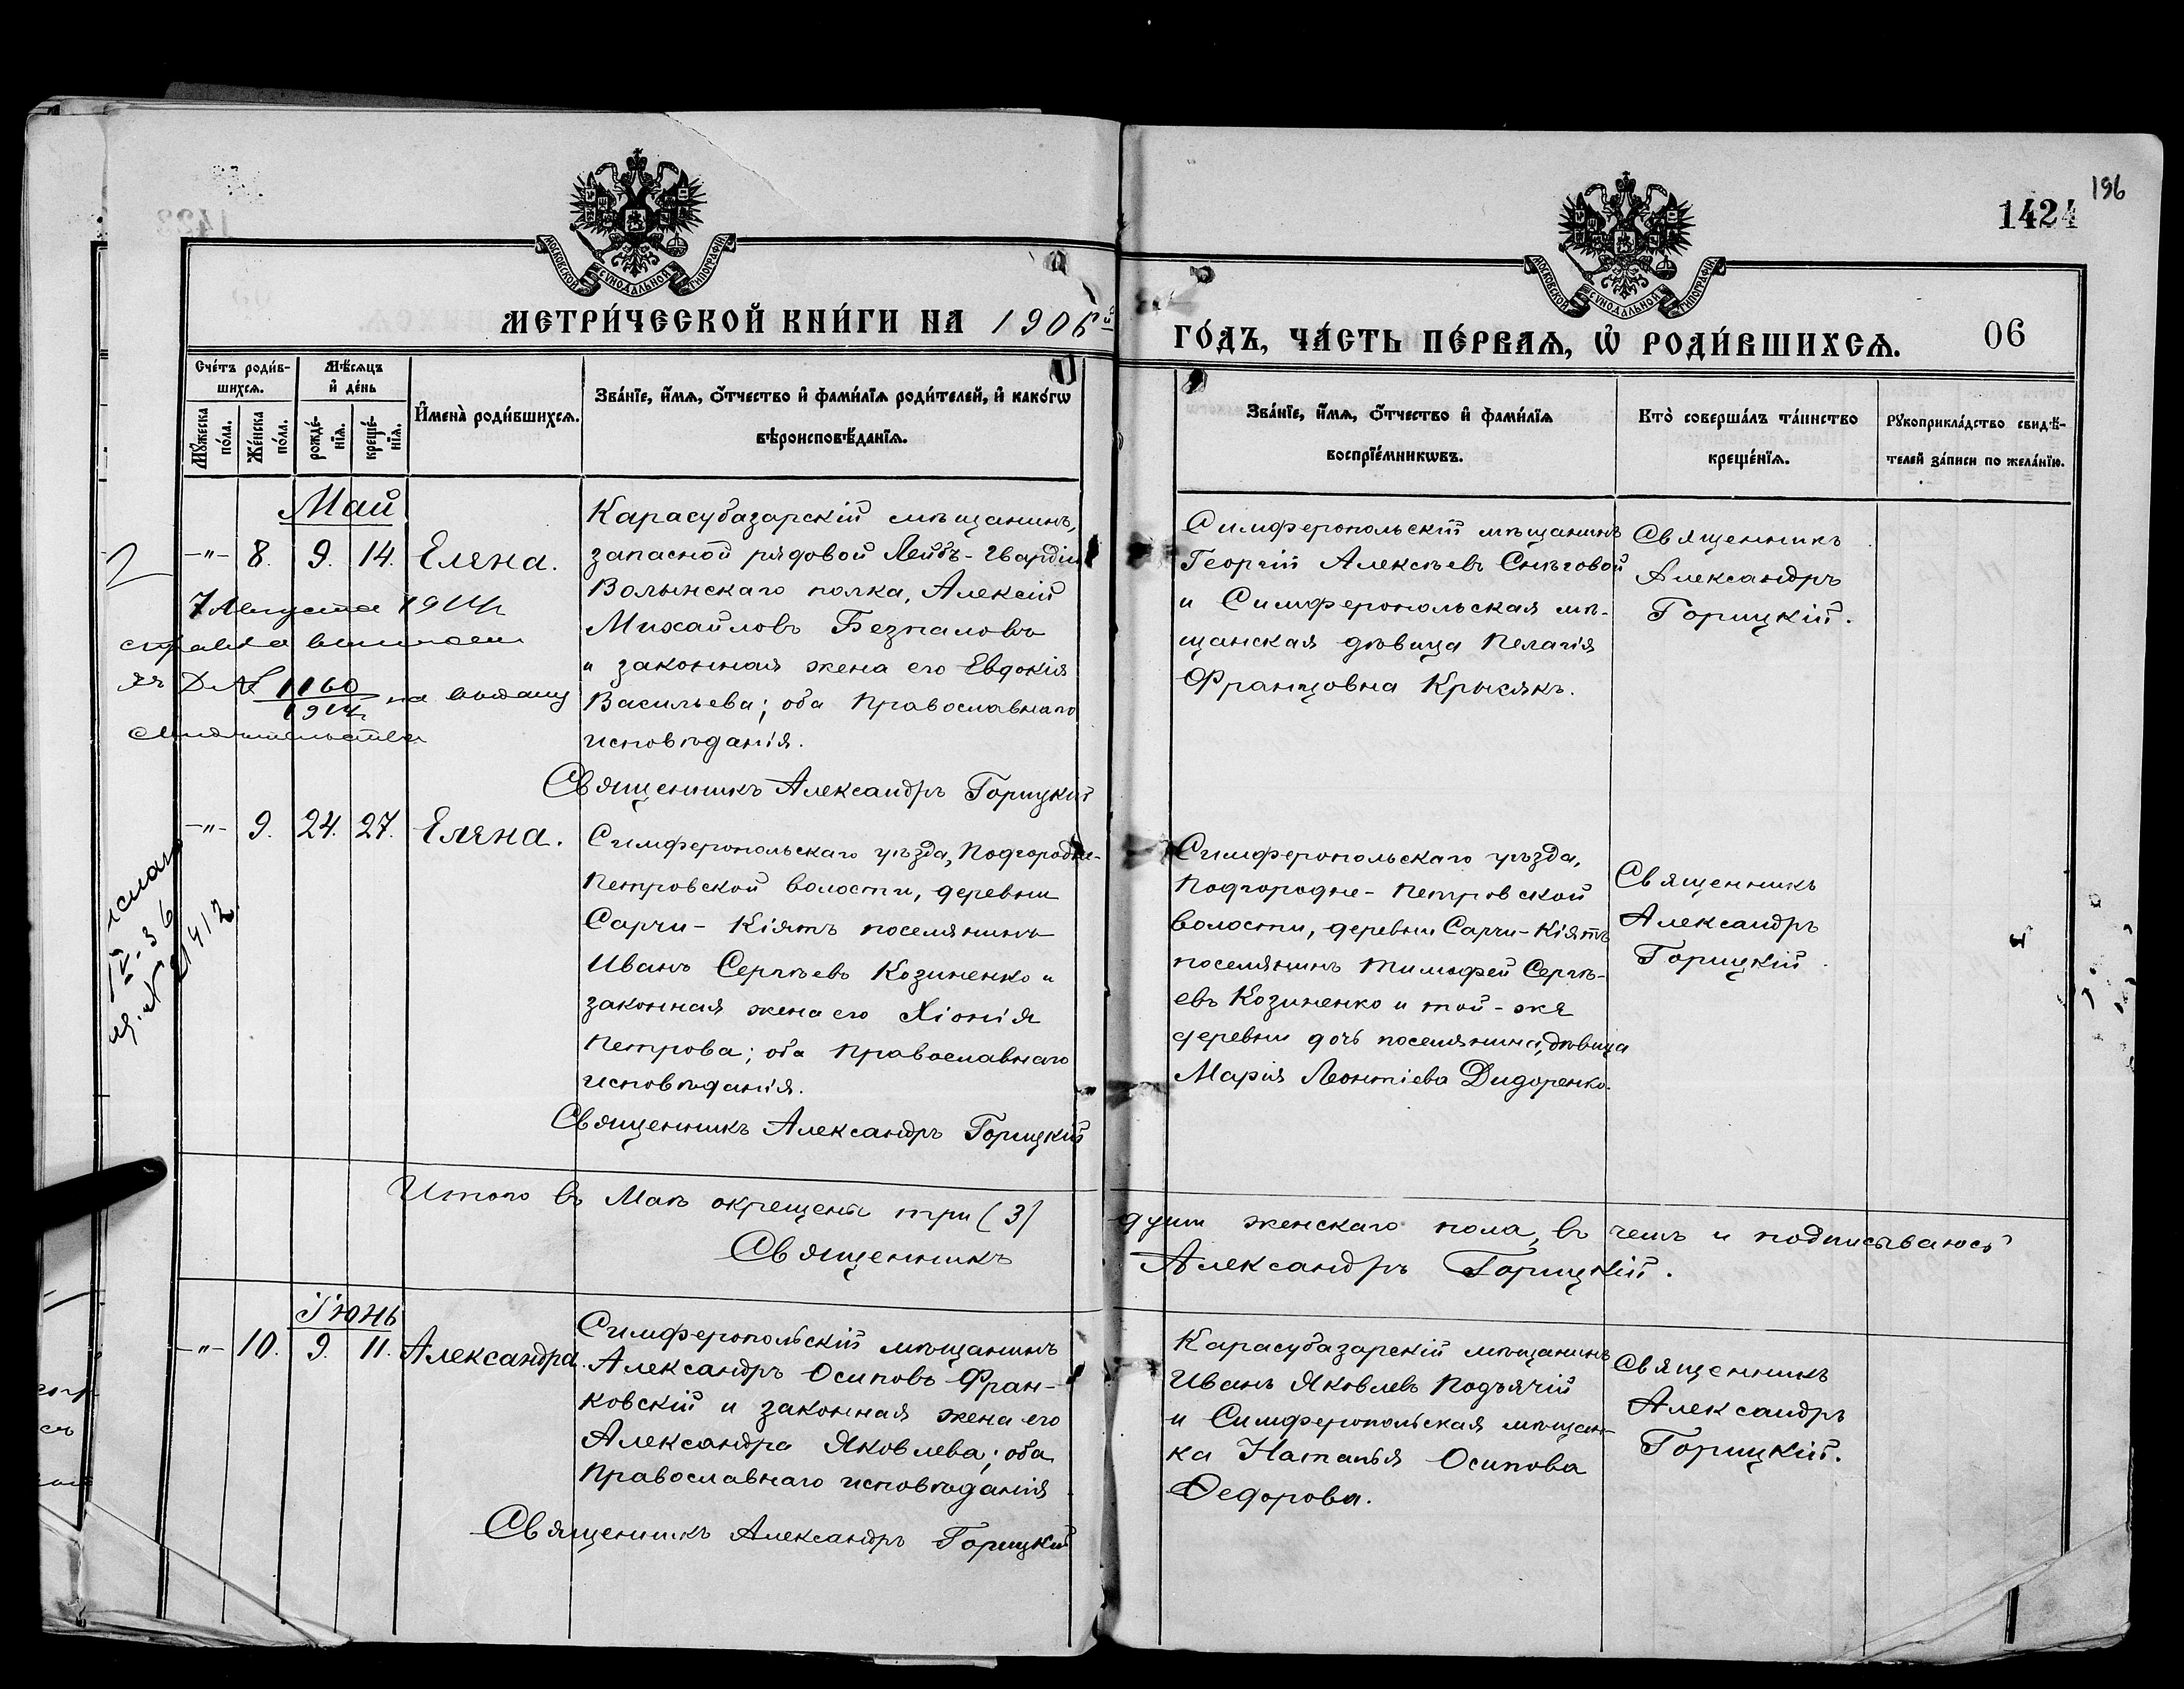 196
1424
МОСКОВСКОЙ СѴНОДАЛЬНОЙ ТИПОГРАФІИ
МОСКОВСКОЙ СѴНОДАЛЬНОЙ ТИПОГРАФІИ
МЕТРИ́ЧЕСКОЙ КНИ́ГИ НА 1906й
ГО́ДЪ, ЧА́СТЬ ПЕ́РВАѦ, Ѡ҆ РОДИ́ВШИХСѦ.
06
Сче́тъ роди́в-
шихсѧ.
Мѣ́сѧцъ
и҆ де́нь
Мꙋ́жеска
по́ла.
Же́нска
по́ла.
рожде́-
нїѧ.
креще́-
нїѧ.
И҆мена̀ роди́вшихсѧ.
Зва́нїе, и҆́мѧ, ѻ҆́тчество и҆ фами́лїѧ роди́телей, и҆ како́гѡ
вѣроисповѣ́данїѧ.
Зва́нїе, и҆́мѧ, ѻ҆́тчество и҆ фами́лїѧ
воспрїе́мникѡвъ.
Кто̀ соверша́лъ та́инство
креще́нїѧ.
Рꙋкоприкла́дство свидѣ́-
телей за́писи по жела́нїю.
Май
-"- 8. 9. 14. Елена.
Карасубазарскій мѣщанинъ,
запасной рядовой Лейбъ-Гвардіи
Волынскаго полка, Алексій
Михайловъ Безпаловъ
и законная жена его Евдокія
Васильева; оба Православнаго
исповѣданія.
Священникъ Александръ Горицкій
Симферопольскій мѣщанинъ
Георгій Алексѣевъ Снѣговой
и Симферопольская мѣ-
щанская дѣвица Пелагія
Францовна Крысякъ.
Священникъ
Александръ
Горицкій.
7 Августа 1914
1160
1914 на выдачу
-"- 9. 24. 27. Елена.
Симферопольскаго уѣзда, Подгородне-
Петровской волости, деревни
Сарчи-Кіятъ поселянинъ
Иванъ Сергѣевъ Козиненко и
законная жена его Хіонія
Петрова; оба Православнаго
исповѣданія.
Священникъ Александръ Горицкій
Симферопольскаго уѣзда,
Подгородне-Петровской
волости, деревни Сарчи-Кіятъ
поселянинъ Тимофей Сергѣ-
евъ Козиненко и той-же
деревни дочь поселянина, дѣвица
Марія Леонтіева Дидоренко.
Священникъ
Александръ
Горицкій
Итого въ Маѣ окрещены три (3) души женскаго пола, въ чемъ и подписываюсь
Священникъ Александръ Горицкій.
Іюнь
-"- 10. 9. 11. Александра.
Симферопольскій мѣщанинъ
Александръ Осиповъ Фран-
ковскій и законная жена его
Александра Яковлева; оба
Православнаго исповѣданія
Священникъ Александръ Горицкій
Карасубазарскій мѣщанинъ
Иванъ Яковлевъ Подъячій
и Симферопольская мѣщан-
ка Наталья Осипова
Федорова.
Священникъ
Александръ
Горицкій.